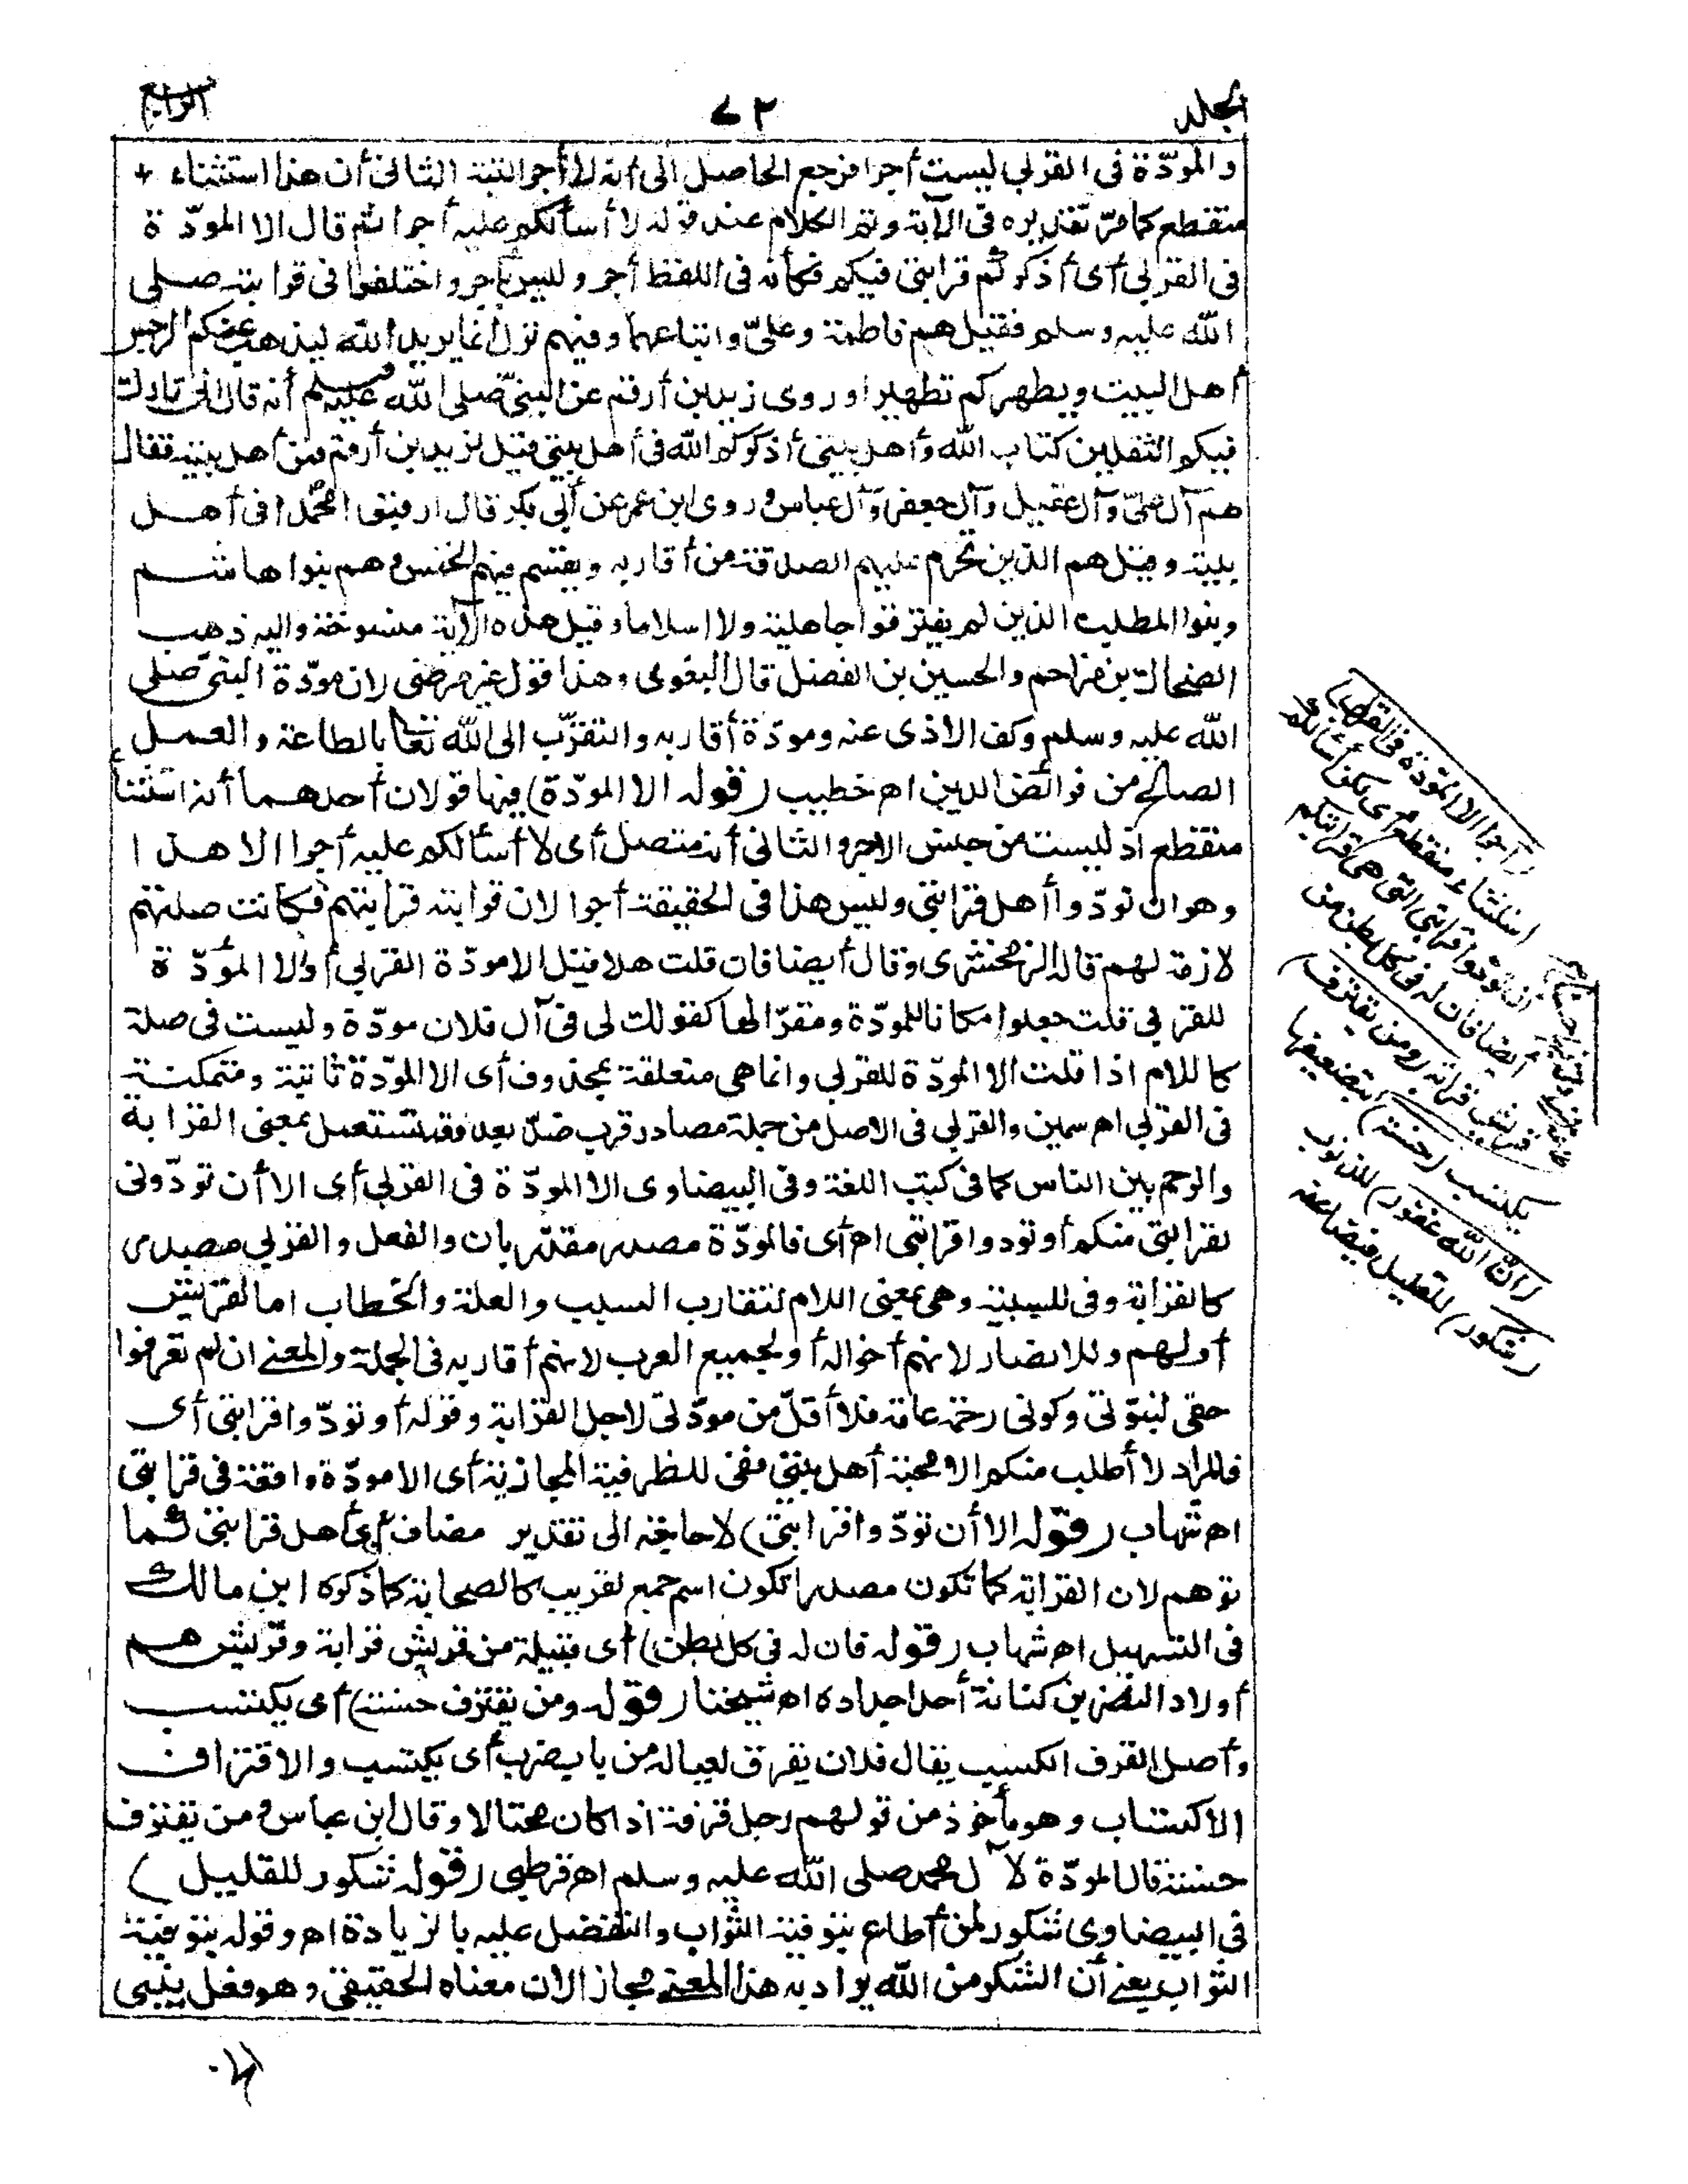 المجلد
٧٢
الرابع
والمودّة فى القربى ليست أجرا فرجع الحاصل الى أنه لا أجر البتة الثانى أن هذا استثناء
منقطع كما مرّ تقديره فى الآية وتم الكلام عند قوله لا أسألكم عليه أجرا ثم قال الا المودّة
فى القربى أى أذكركم قرابتى فيكم فكأنه فى اللفظ أجر وليس بأجر واختلفوا فى قرابته صلى
الله عليه وسلم فقيل هم فاطمة وعلىّ وابناهما وفيهم نزل انما يريد الله ليذهب عنكم الرجس
أهل البيت ويطهركم تطهيرا وروى زيد بن أرقم عن النبىّ صلى الله عليه وسلم أنه قال انى تارك
فيكم الثقلين كتاب الله وأهل بيتى أذكركم الله فى أهل بيتى قيل لزيد بن أرقم فمن أهل بيته فقال
هم آل علىّ وآل عقيل وآل جعفر وآل عباس وروى ابن عمر عن أبى بكر قال ارقبوا محمدا فى أهل
بيته وقيل هم الذين تحرم عليهم الصدقة من أقاربه ويقسم فيهم الخمس وهم بنوا هاشم
وبنوا المطلب الذين لم يفترقوا جاهلية ولا اسلاما وقيل هذه الآية منسوخة واليه ذهب
الضحاك بن مزاحم والحسين بن الفضل قال البغوى وهذا قول غير مرضى لان مودّة النبىّ صلى
الله عليه وسلم وكف الاذى عنه ومودّة أقاربه والتقرّب الى الله تعالى بالطاعة والعمل
الصالح من فرائض الدين اه خطيب (قوله الا المودّة) فيها قولان أحدهما أنه استثناء
منقطع اذ ليست من جنس الاجر والثانى أنه متصل أى لا أسألكم عليه أجرا الا هذا
وهو ان تودّوا أهل قرابتى وليس هذا فى الحقيقة أجرا لان قرابته قرابتهم فكانت صلتهم
لازمة لهم قاله الزمخشرى وقال أيضا فان قلت هلا قيل الا مودّة القربى أو الا المودّة
للقربى قلت جعلوا مكانا للمودّة ومقرّا لها كقولك لى فى آل فلان مودّة وليست فى صلة
كاللام اذا قلت الا المودّة للقربى وانما هى متعلقة بمحذوف أى الا المودّة ثابتة ومتمكنة
فى القربى اه سمين والقربى فى الاصل من جملة مصادر قرب ضدّ بعد وقد تستعمل بمعنى القرابة
والرحم بين الناس كما فى كتب اللغة وفى البيضاوى الا المودّة فى القربى أى الا أن تودّونى
لقرابتى منكم أو تودوا قرابتى اه أى فالمودّة مصدر مقدّر بان والفعل والقربى مصدر
كالقرابة وفى للسببية وهى بمعنى اللام لتقارب السبب والعلة والخطاب اما لقريش
أو لهم وللانصار لانهم أخواله أو لجميع العرب لانهم أقاربه فى الجملة والمعنى ان لم تعرفوا
حقى لنبوّتى وكونى رحمة عامة فلا أقلّ من مودّتى لاجل القرابة وقوله أو تودّوا قرابتى أى
فالمراد لا أطلب منكم الا محبة أهل بيتى ففى للظرفية المجازية أى الا مودّة واقعة فى قرابتى
اه شهاب (قوله الا أن تودّوا قرابتى) لا حاجة الى تقدير مضاف أى أهل قرابتى كما
توهم لان القرابة كما تكون مصدرا تكون اسم جمع لقريب كالصحابة كما ذكره ابن مالك
فى التسهيل اه شهاب (قوله فان له فى كل بطن) أى قبيلة من قريش قرابة وقريش هم
أولاد النضر بن كنانة أحد اجداده اه شيخنا (قوله ومن يقترف حسنة) أى يكتسب
وأصل القرف الكسب يقال فلان يقرف لعياله من باب ضرب أى يكتسب والاقتراف
الاكتساب وهو مأخوذ من قولهم رجل قرفة اذا كان محتالا وقال ابن عباس ومن يقترف
حسنة قال المودّة لآل محمد صلى الله عليه وسلم اه قرطبى (قوله شكور للقليل)
فى البيضاوى شكور لمن أطاع بتوفية الثواب والتفضل عليه بالزيادة اه وقوله بتوفية
الثواب يعنى أن الشكر من الله يراد به هذا المعنى مجازا لان معناه الحقيقى وهو فعل ينبى
(أجرا الا المودّة فى القربى)
استثناء منقطع أى لكن أسألكم
أن تودوا قرابتى التى هى قرابتكم
أيضا فان له فى كل بطن من
قريش قرابة (ومن يقترف)
يكتسب (حسنة) بتضعيفها
(ان الله غفور) للذنوب
(شكور) للقليل فيضاعفه